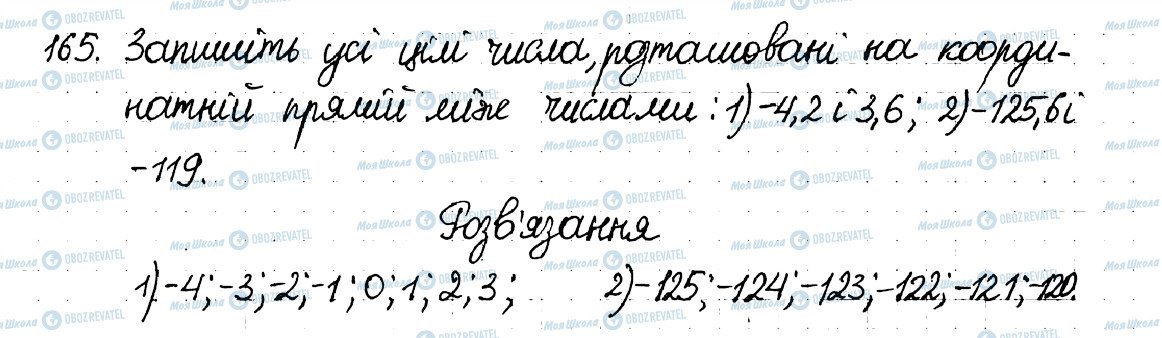 165. Запишіть усі цілі числа, розташовані на коорди-
натній прямій між числами: 1) -4,2 і 3,6; 2) -125,6 і
-119.
Розв'язання
1) -4; -3; -2; -1; 0; 1; 2; 3; 2) -125; -124; -123; -122; -121; -120.